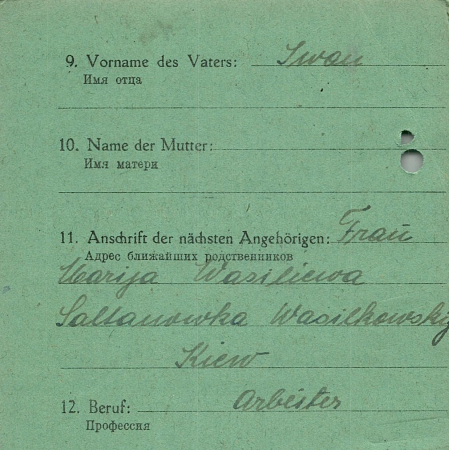 9. Vorname des Vaters: Iwan
Имя отца
10. Name der Mutter:
Имя матери
11. Anschrift der nächsten Angehörigen: Frau
Адрес ближайших родственников
Marija Wasiliewa
Saltanowka Wasilkowsky
Kiew
12. Beruf: Arbeiter
Профессия